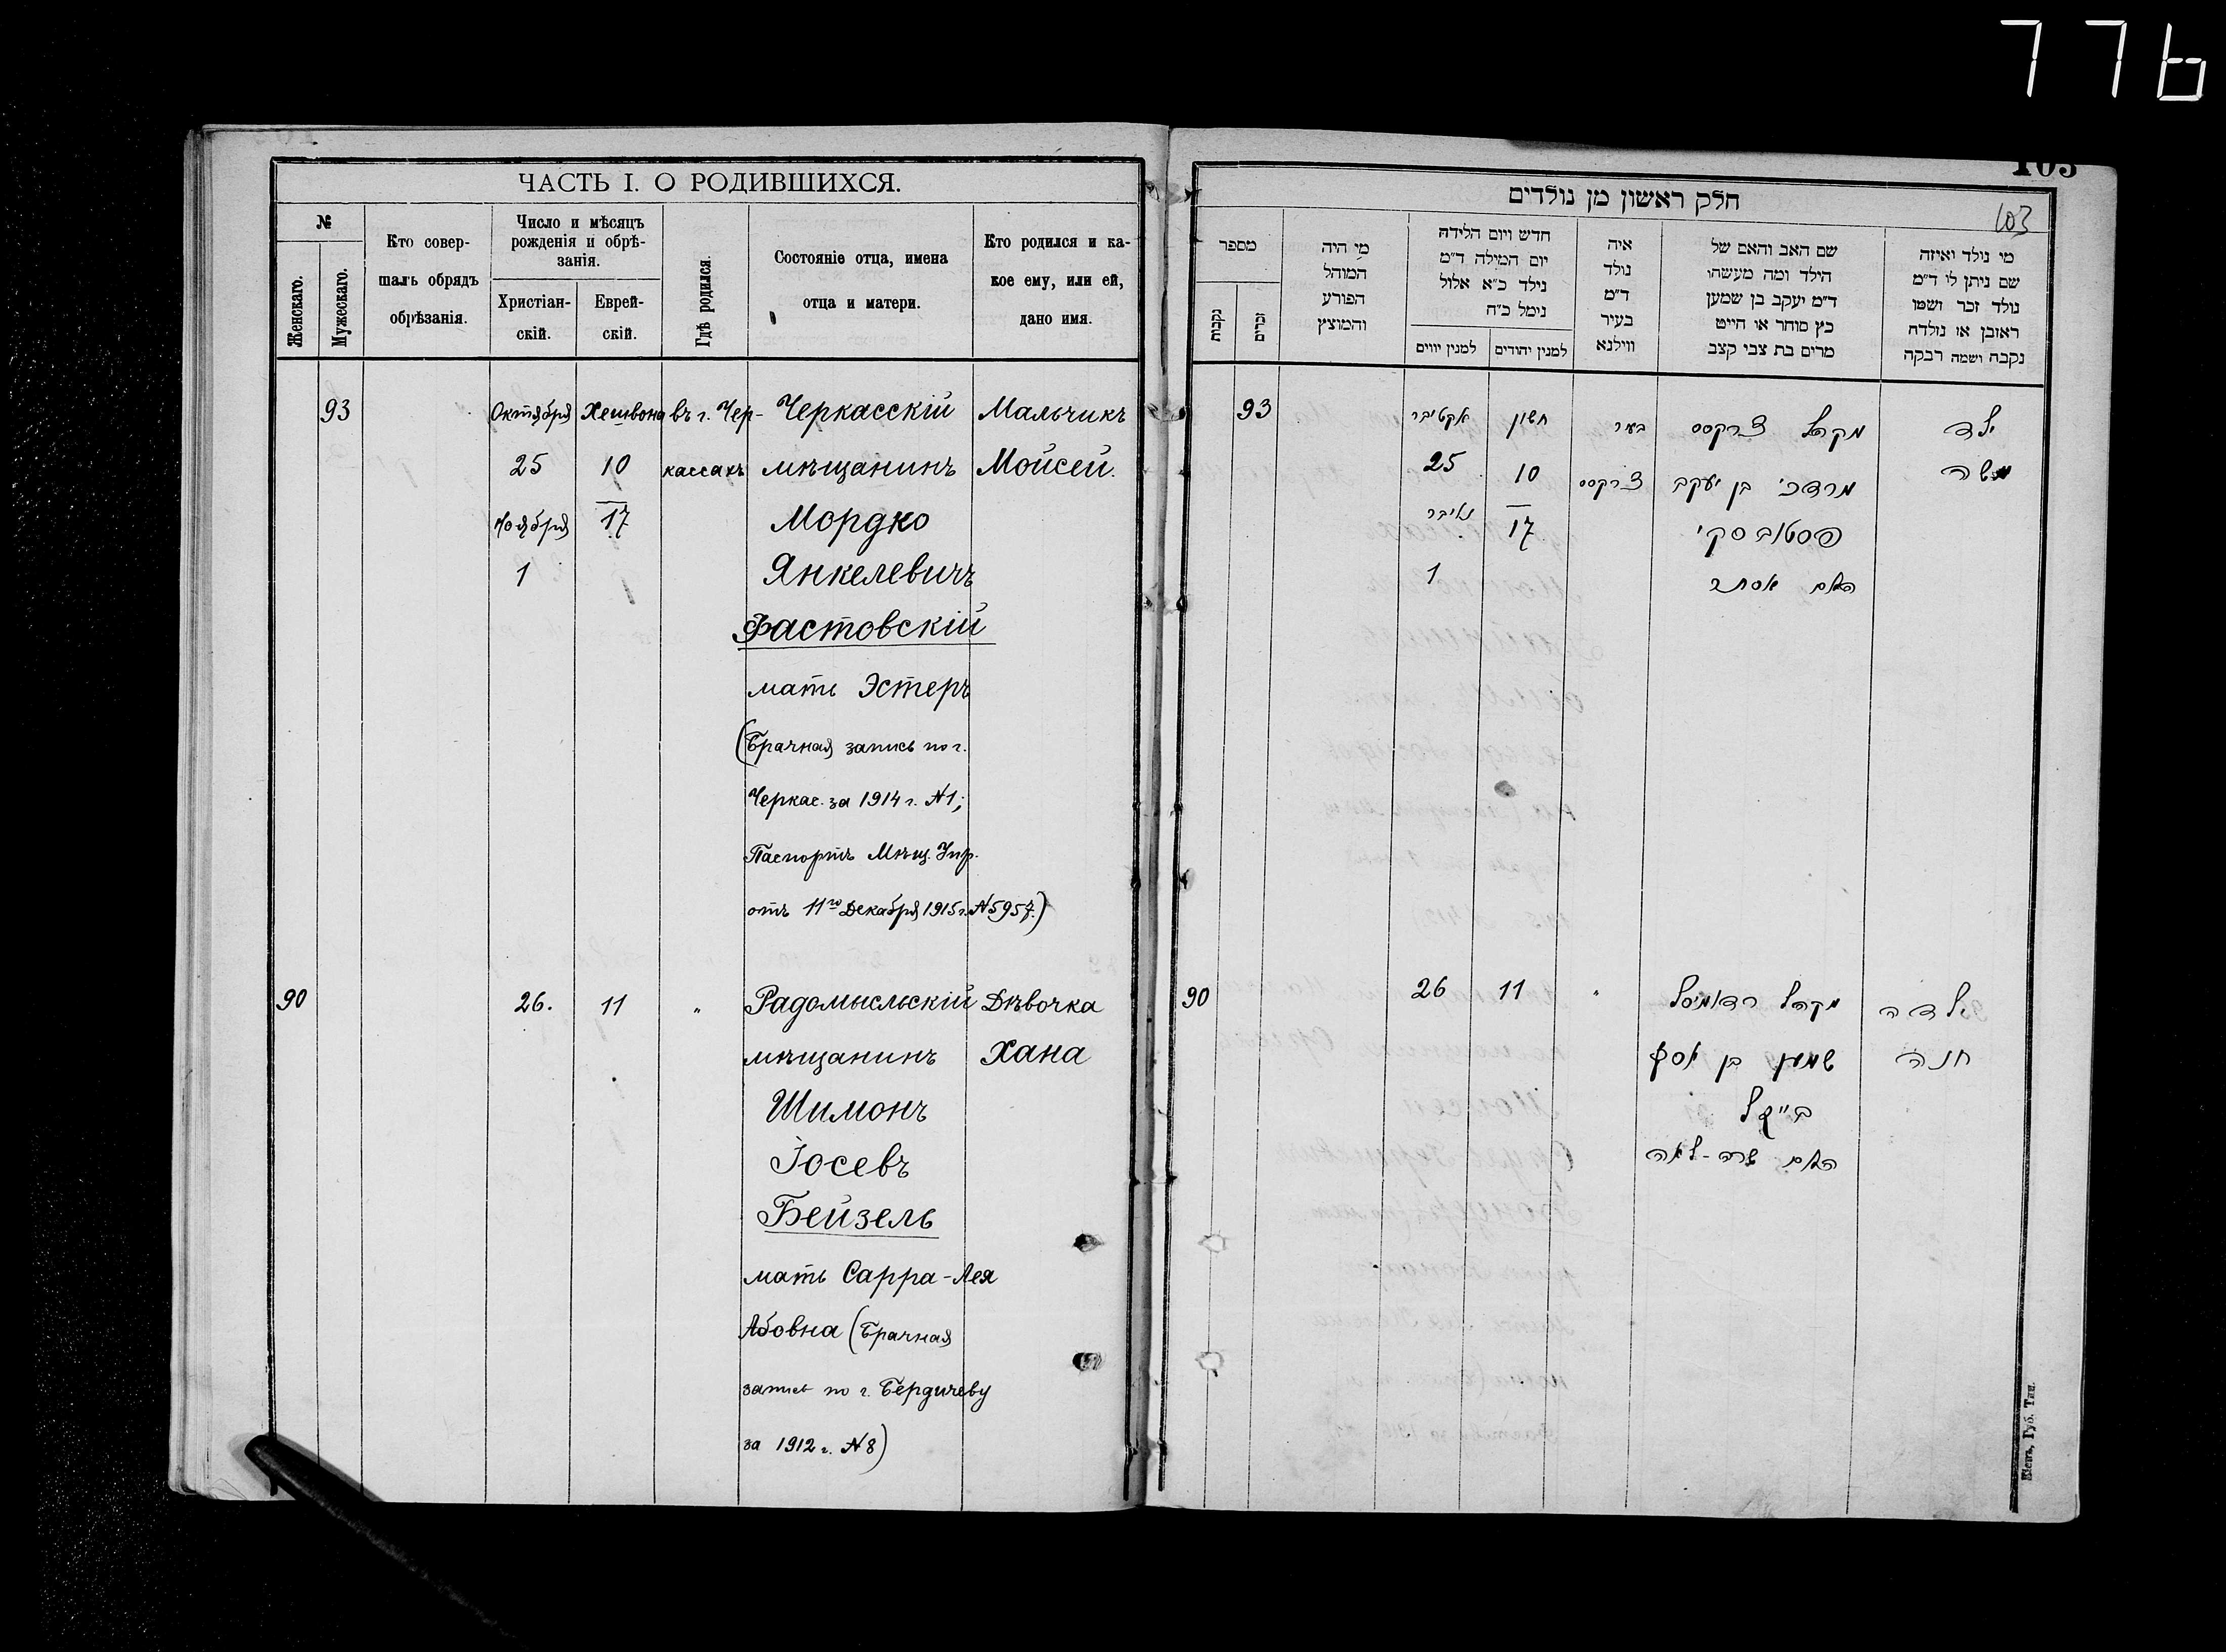 776
ЧАСТЬ I. О РОДИВШИХСЯ.
№
Женскаго.
Мужескаго.
Кто совер-
шалъ обрядъ
обрѣзанія.
Число и мѣсяцъ
рожденія и обрѣ-
занія.
Христіан-
скій.
Еврей-
скій.
Гдѣ родился.
Состояніе отца, имена
отца и матери.
Кто родился и ка-
кое ему, или ей,
дано имя.
93 Октября Хешвона въ г. Чер- Черкасскій Мальчикъ
25 10 кассахъ мѣщанинъ Мойсей.
Ноября 17 Мордко
1 Янкелевичъ
Фастовскій
мать Эстеръ
(Брачная запись по г.
Черкас. за 1914 г. №1;
Паспортъ Мѣщ. Упр.
отъ 11го Декабря 1915 г. №5957.)
90 26. 11 " Радомысльскій Дѣвочка
мѣщанинъ Хана
Шимонъ
Іосевъ
Бейзель
мать Сарра-Лея
Абовна (Брачная
запись по г. Бердичеву
за 1912 г. №8)
103
חלק ראשון מן נולדים
103
מספר
נקבות
זכרים
מי היה
המוהל
הפורע
והמוצץ
חדש ויום הלידה
יום המילה ד"מ
נילד כ"א אלול
נימל כ"ח
למנין יווים
למנין יהודים
איה
נולד
ד"מ
בעיר
ווילנא
שם האב והאם של
הילד ומה מעשהו
ד"מ יעקב בן שמען
כץ סוחר או חייט
מרים בת צבי קצב
מי נולד ואיזה
שם ניתן לו ד"מ
נולד זכר ושמו
ראובן או נולדה
נקבה ושמה רבקה
93 אקטיבר חשון בעיר מקהל צרקסס ילד
25 10 צרקסס מרדכי בן יעקב משה
נאיבר 17 פסטובסקי
1 האם אסתר
90 26 11 " מקהל ראדמיסל ילדה
שמעון בן יוסף חנה
בייזל
האם שרה-לאה
Кіевъ, Губ. Тип.